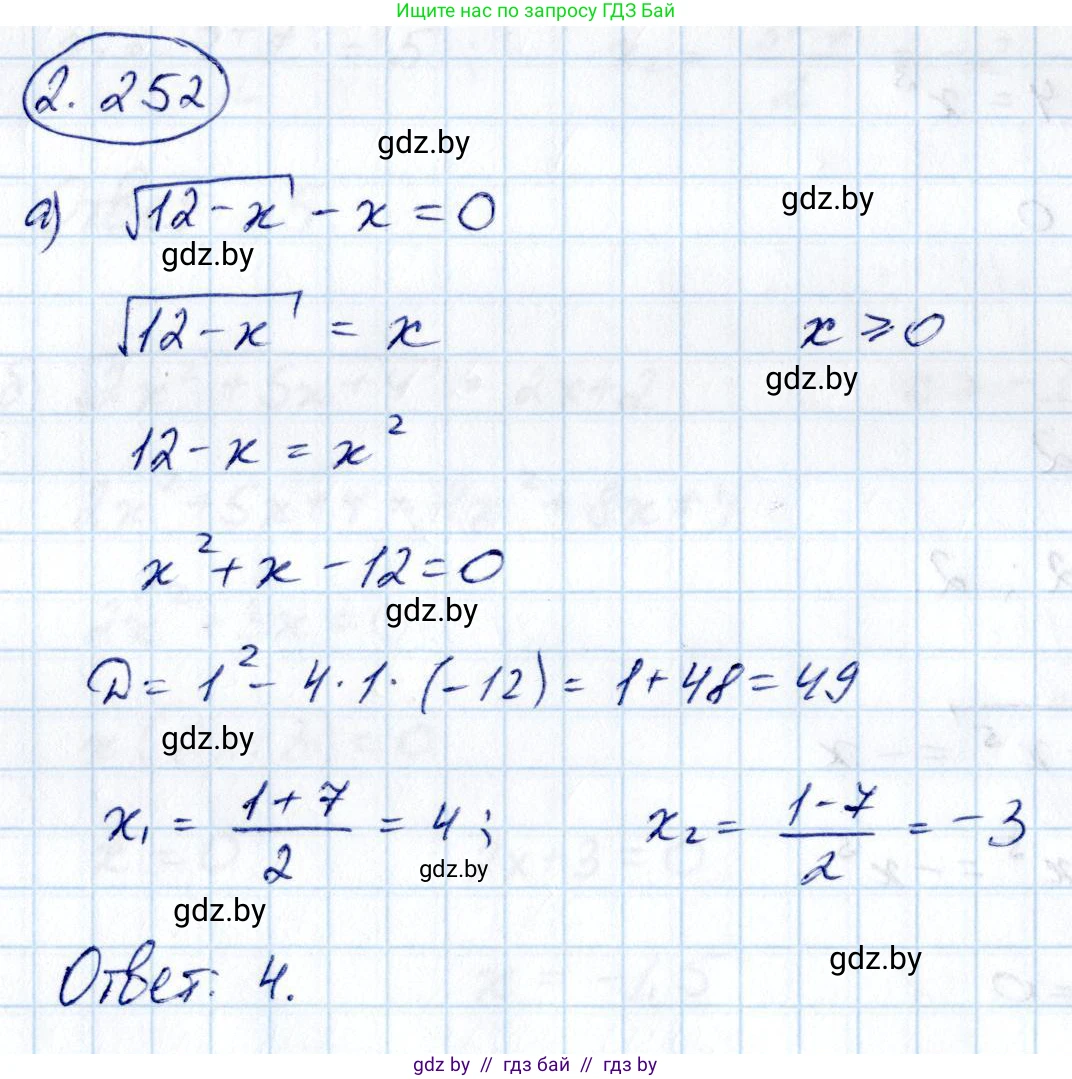 Ищите нас по запросу ГДЗ Бай
2.252
gdz.by
а) √12-x - x = 0
gdz.by
gdz.by
√12-x = x x ≥ 0
gdz.by
12 - x = x²
x² + x - 12 = 0
gdz.by
D = 1² - 4·1·(-12) = 1+48 = 49
gdz.by
x₁ = (1+7)/2 = 4; x₂ = (1-7)/2 = -3
gdz.by
gdz.by
gdz.by
Ответ: 4.
gdz.by // гдз бай // гдз by